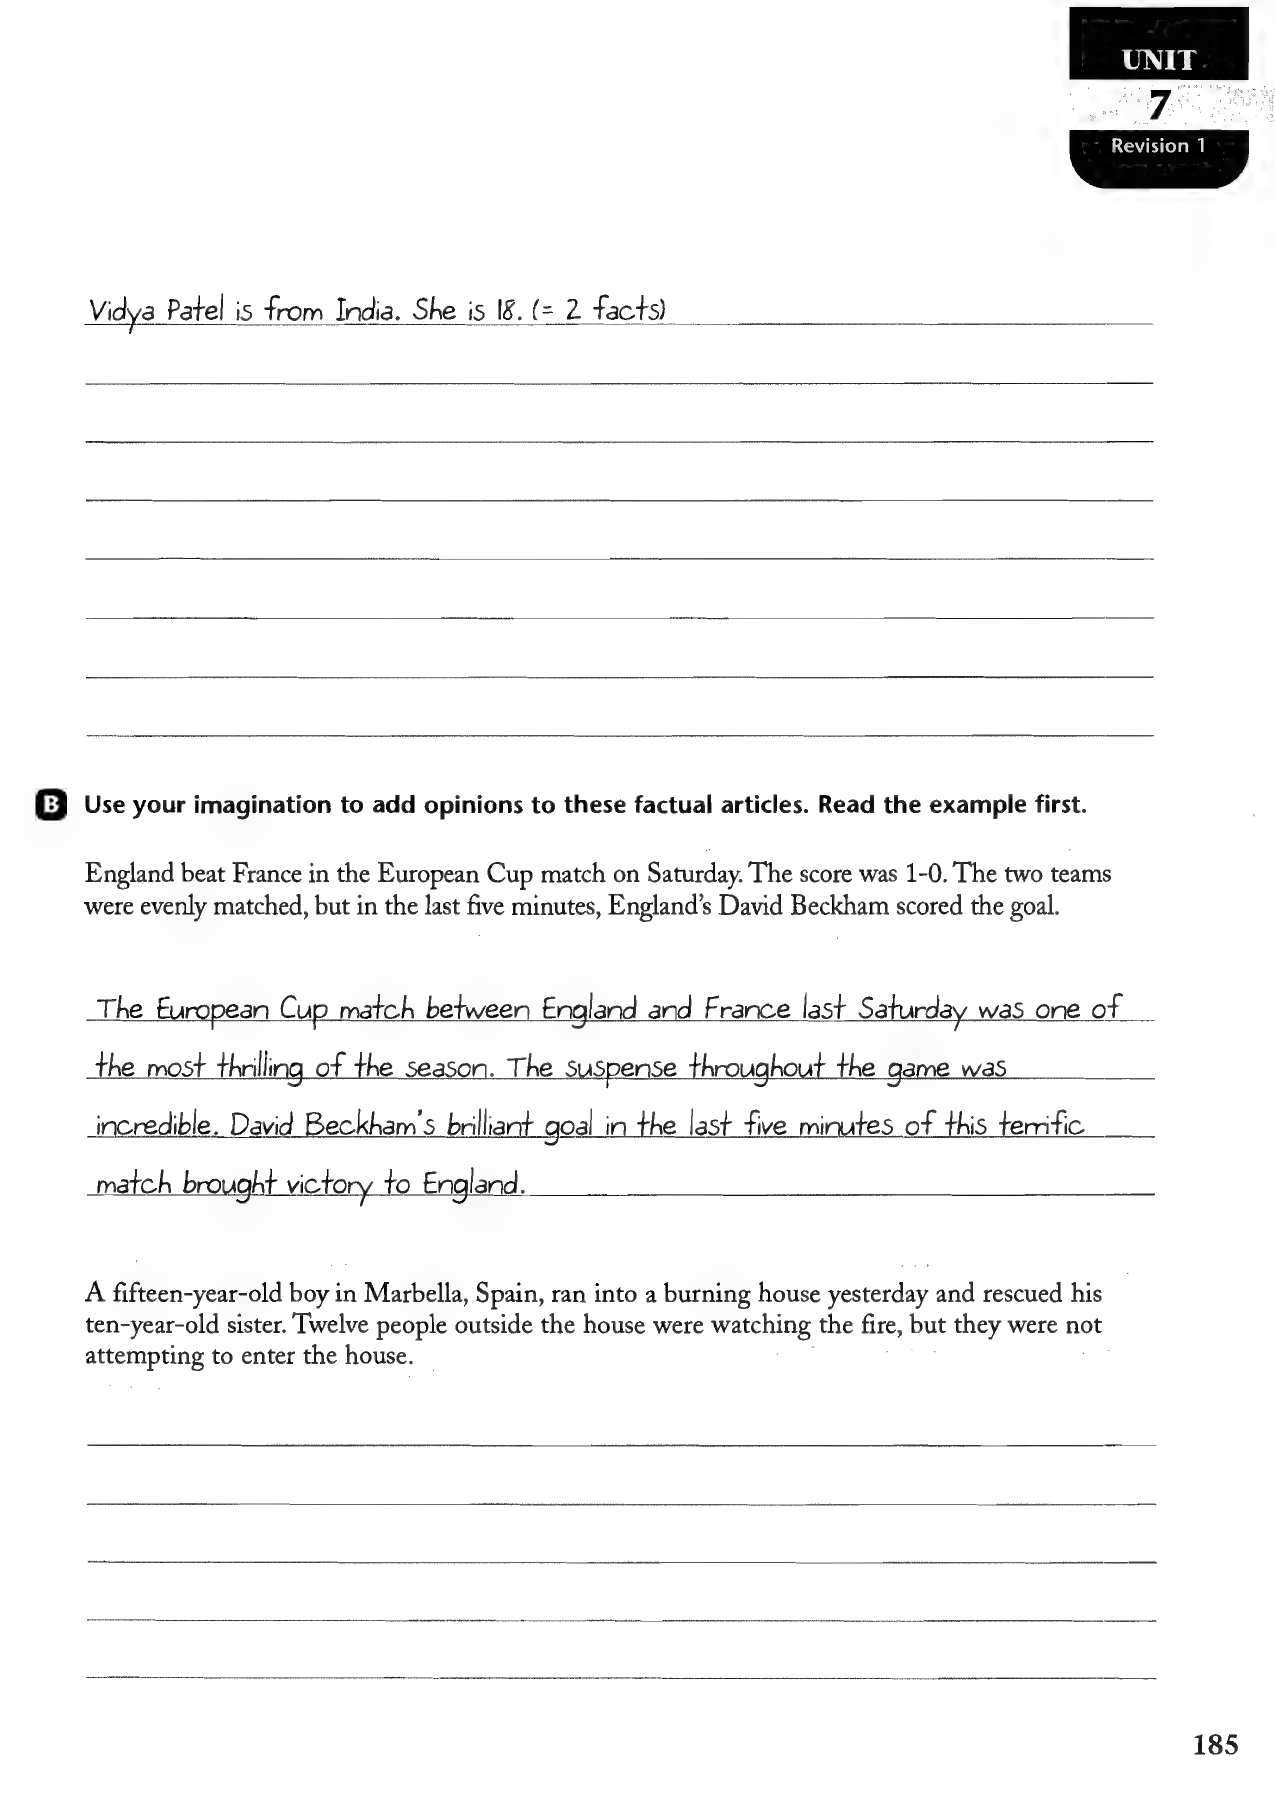 UNIT
7
Revision 1
Vidya Patel is from India. She is 18. (= 2 facts)
B Use your imagination to add opinions to these factual articles. Read the example first.
England beat France in the European Cup match on Saturday. The score was 1-0. The two teams
were evenly matched, but in the last five minutes, England's David Beckham scored the goal.
The European Cup match between England and France last Saturday was one of
the most thrilling of the season. The suspense throughout the game was
incredible. David Beckham's brilliant goal in the last five minutes of this terrific
match brought victory to England.
A fifteen-year-old boy in Marbella, Spain, ran into a burning house yesterday and rescued his
ten-year-old sister. Twelve people outside the house were watching the fire, but they were not
attempting to enter the house.
185